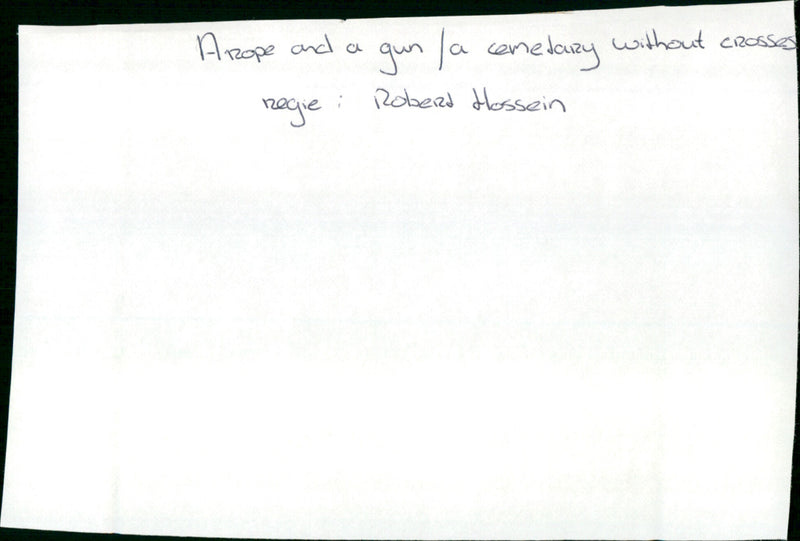 A rope and a gun / a cemetary without crosses
regie : Robert Hossein